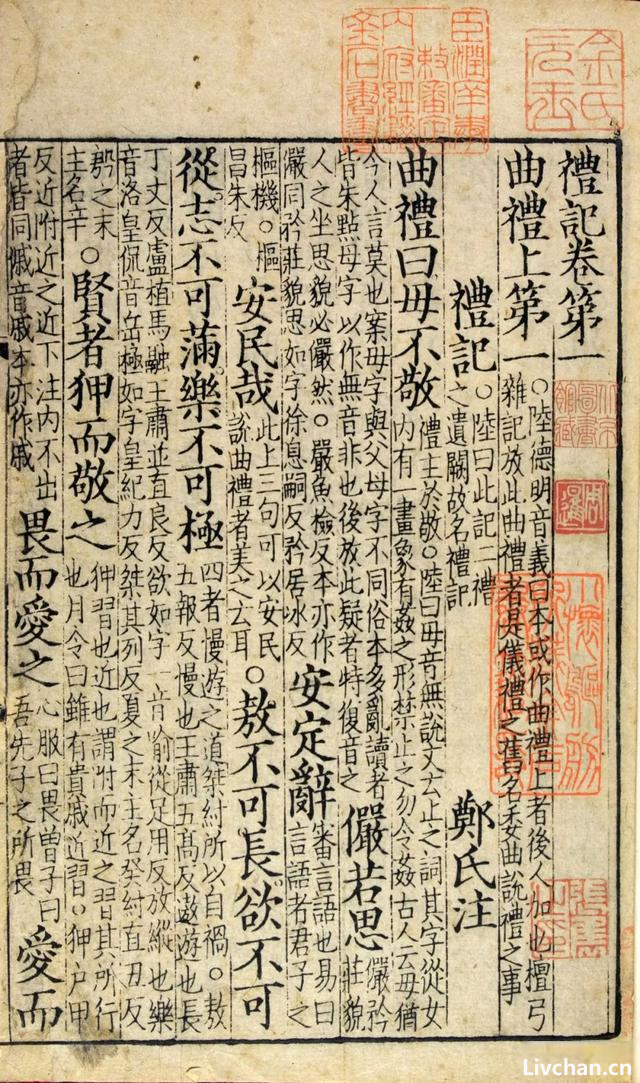 禮記卷第一
曲禮上第一
○陸德明音義曰本或作曲禮上者後人加也檀弓
雜記放此曲禮者是儀禮之舊名委曲說禮之事
禮記
○陸曰此記二禮
之遺闕故名禮記
鄭氏注
曲禮曰毋不敬
禮主於敬○陸曰毋音無說文云止之詞其字從女
內有一畫象有姦之形禁止之勿令姦古人云毋猶
今人言莫也案毋字與父母字不同俗本多亂讀者
皆朱點母字以作無音非也後放此疑者特復音之
儼若思
儼矜
莊貌
人之坐思貌必儼然○嚴魚檢反本亦作
儼同矜莊貌思如字徐息嗣反矜居冰反
安定辭
審言語也易曰
言語者君子之
樞機○樞
昌朱反
安民哉
此上三句可以安民
說曲禮者美之云耳
○敖不可長欲不可
從志不可滿樂不可極
四者慢遊之道桀紂所以自禍○敖
五報反慢也王肅五高反遨遊也長
丁丈反盧植馬融王肅並直良反欲如字一音喻從足用反放縱也樂
音洛皇侃音岳極如字皇紀力反桀其列反夏之末主名癸紂直丑反
殷之末
主名辛
○賢者狎而敬之
狎習也近也謂附而近之習其所行
也月令曰雖有貴戚近習○狎戶甲
反近附近之近下注內不出
者皆同慼音戚本亦作戚
畏而愛之
心服曰畏曾子曰
吾先子之所畏
愛而
Livchan.cn